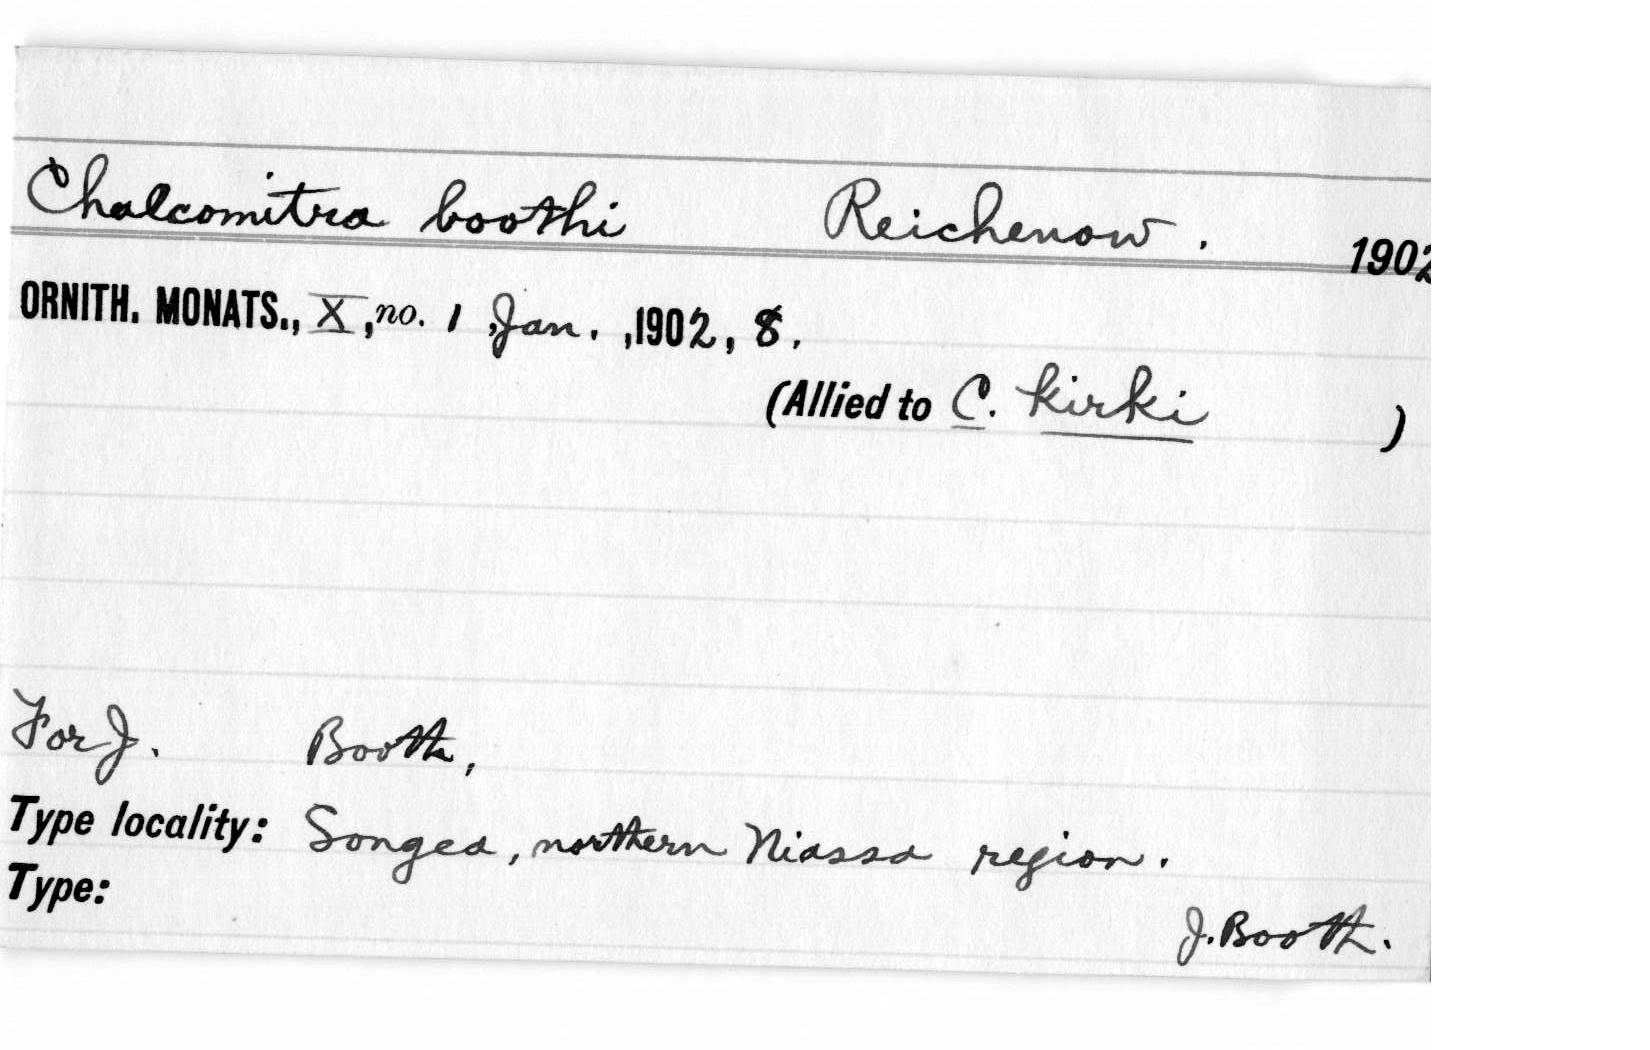 Chalcomitra boothi Reichenow. 1902
ORNITH. MONATS., X, no. 1, Jan., 1902, 8.
(Allied to C. kirki )
For J. Booth,
Type locality: Songea, northern Niassa region.
Type:
J. Booth.